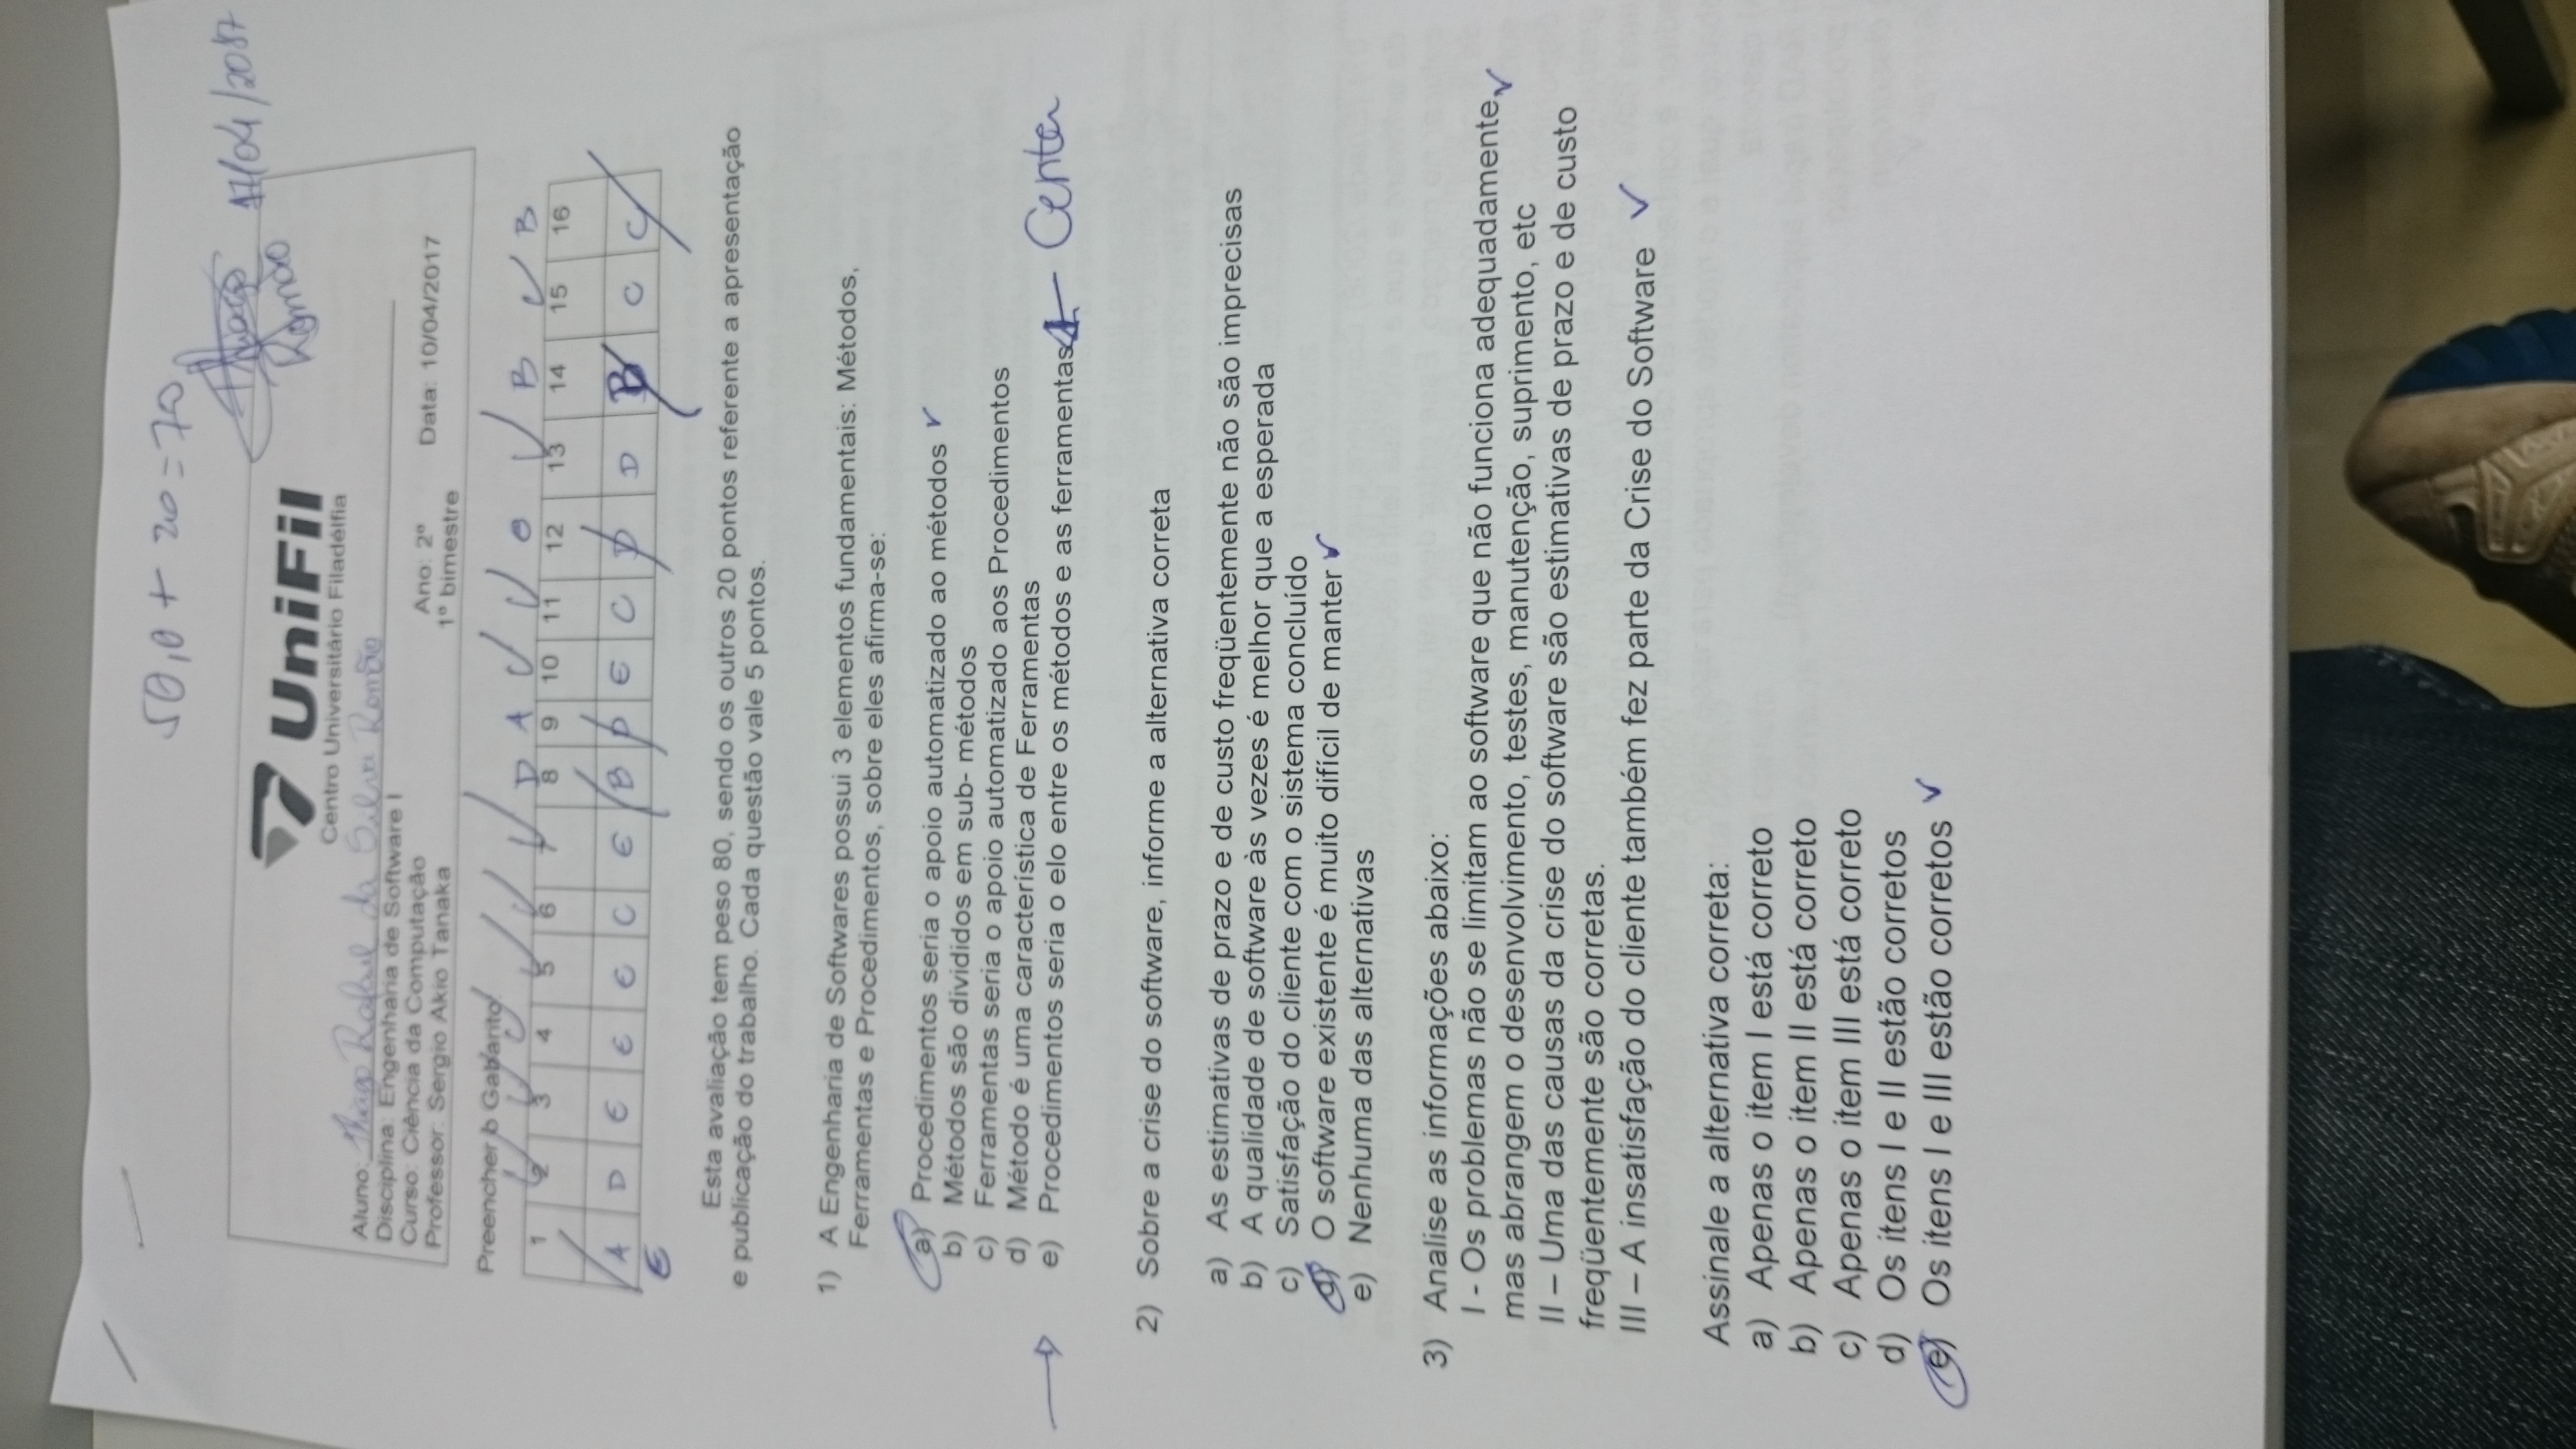 50,0 + 20 = 70
Thiago
Romão
17/04/2017
UniFil
Centro Universitário Filadélfia
Aluno: Thiago Rafael da Silva Romão
Disciplina: Engenharia de Software I
Curso: Ciência da Computação
Professor: Sergio Akio Tanaka
Ano: 2º
1º bimestre
Data: 10/04/2017
Preencher o Gabarito:
D A B B
1 2 3 4 5 6 7 8 9 10 11 12 13 14 15 16
A D E E E C E B D E C D D B C C
E
Esta avaliação tem peso 80, sendo os outros 20 pontos referente a apresentação
e publicação do trabalho. Cada questão vale 5 pontos.
1) A Engenharia de Softwares possui 3 elementos fundamentais: Métodos,
Ferramentas e Procedimentos, sobre eles afirma-se:
a) Procedimentos seria o apoio automatizado ao métodos
b) Métodos são divididos em sub- métodos
c) Ferramentas seria o apoio automatizado aos Procedimentos
d) Método é uma característica de Ferramentas
e) Procedimentos seria o elo entre os métodos e as ferramentas Certa
2) Sobre a crise do software, informe a alternativa correta
a) As estimativas de prazo e de custo freqüentemente não são imprecisas
b) A qualidade de software às vezes é melhor que a esperada
c) Satisfação do cliente com o sistema concluído
d) O software existente é muito difícil de manter
e) Nenhuma das alternativas
3) Analise as informações abaixo:
I - Os problemas não se limitam ao software que não funciona adequadamente,
mas abrangem o desenvolvimento, testes, manutenção, suprimento, etc
II – Uma das causas da crise do software são estimativas de prazo e de custo
freqüentemente são corretas.
III – A insatisfação do cliente também fez parte da Crise do Software
Assinale a alternativa correta:
a) Apenas o item I está correto
b) Apenas o item II está correto
c) Apenas o item III está correto
d) Os itens I e II estão corretos
e) Os itens I e III estão corretos